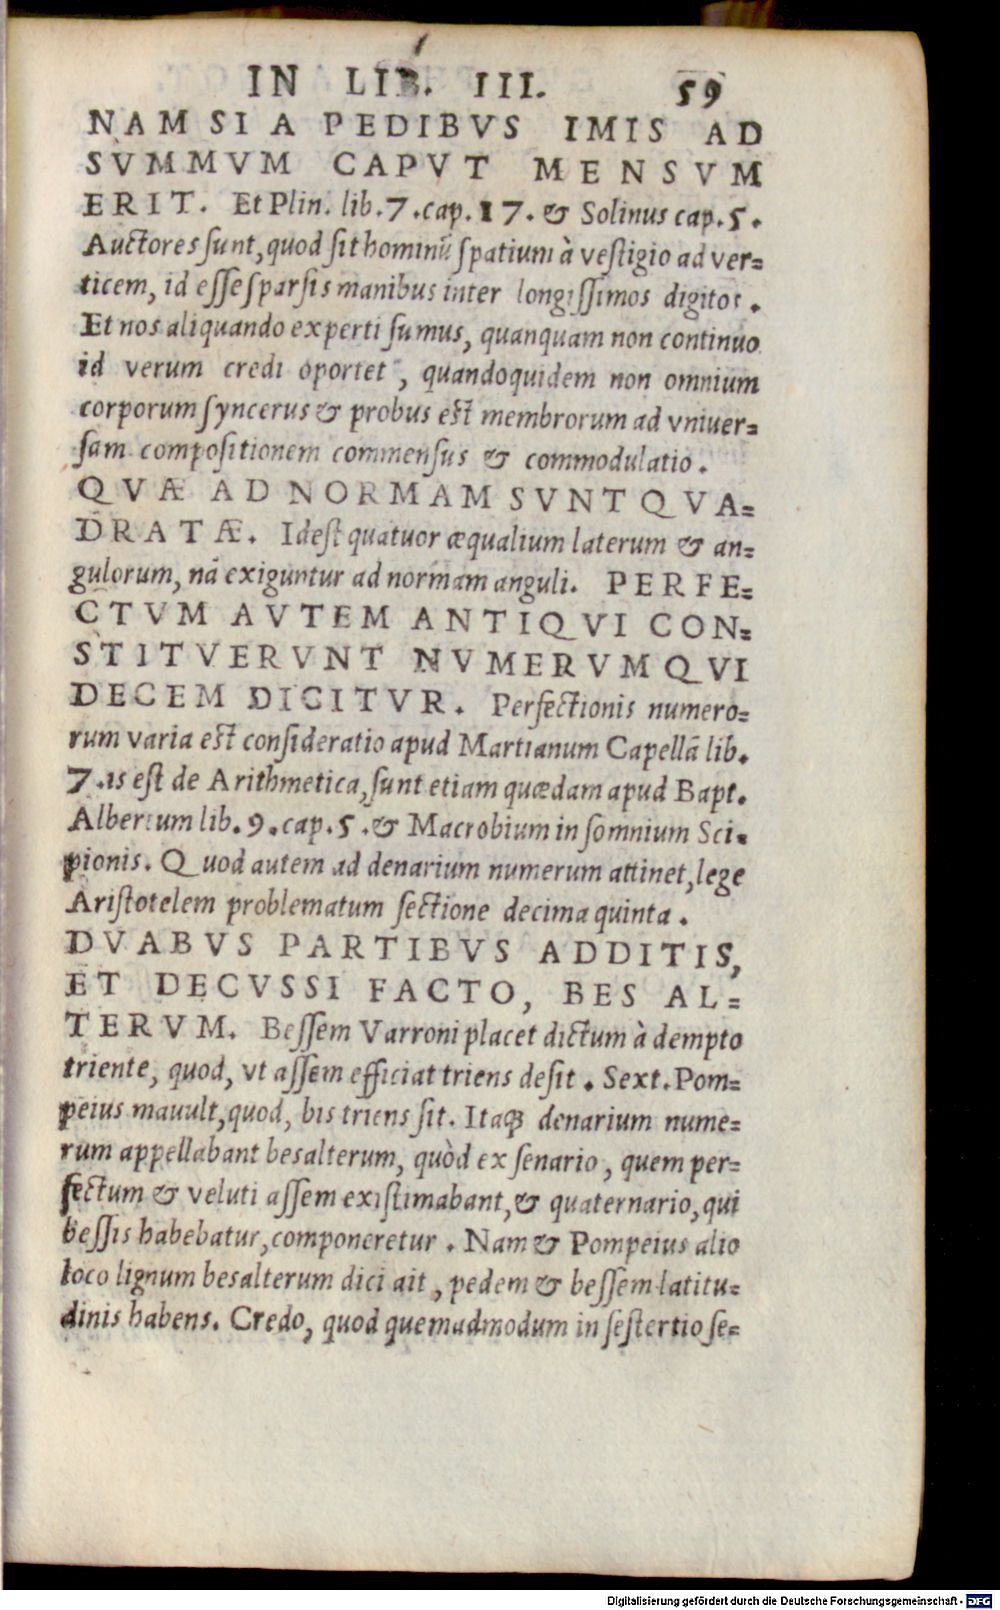 IN LIB. III. 59
NAM SI A PEDIBVS IMIS AD
SVMMVM CAPVT MENSVM
ERIT. Et Plin. lib. 7. cap. 17. & Solinus cap. 5.
Auctores sunt, quod sit hominũ spatium à vestigio ad ver=
ticem, id esse sparsis manibus inter longissimos digitos.
Et nos aliquando experti sumus, quanquam non continuo
id verum credi oportet, quandoquidem non omnium
corporum syncerus & probus est membrorum ad vniuer=
sam compositionem commensus & commodulatio.
QVÆ AD NORMAM SVNT QVA=
DRATÆ. Idest quatuor æqualium laterum & an=
gulorum, nã exiguntur ad normam anguli. PERFE=
CTVM AVTEM ANTIQVI CON=
STITVERVNT NVMERVM QVI
DECEM DICITVR. Perfectionis numero=
rum varia est consideratio apud Martianum Capellã lib.
7. is est de Arithmetica, sunt etiam quædam apud Bapt.
Albertum lib. 9. cap. 5. & Macrobium in somnium Sci=
pionis. Quod autem ad denarium numerum attinet, lege
Aristotelem problematum sectione decima quinta.
DVABVS PARTIBVS ADDITIS,
ET DECVSSI FACTO, BES AL=
TERVM. Bessem Varroni placet dictum à dempto
triente, quod, vt assem efficiat triens desit. Sext. Pom=
peius mauult, quod, bis triens sit. Itaq; denarium nume=
rum appellabant besalterum, quòd ex senario, quem per=
fectum & veluti assem existimabant, & quaternario, qui
bessis habebatur, componeretur. Nam & Pompeius alio
loco lignum besalterum dici ait, pedem & bessem latitu=
dinis habens. Credo, quod quemadmodum in sestertio se=
Digitalisierung gefördert durch die Deutsche Forschungsgemeinschaft - DFG